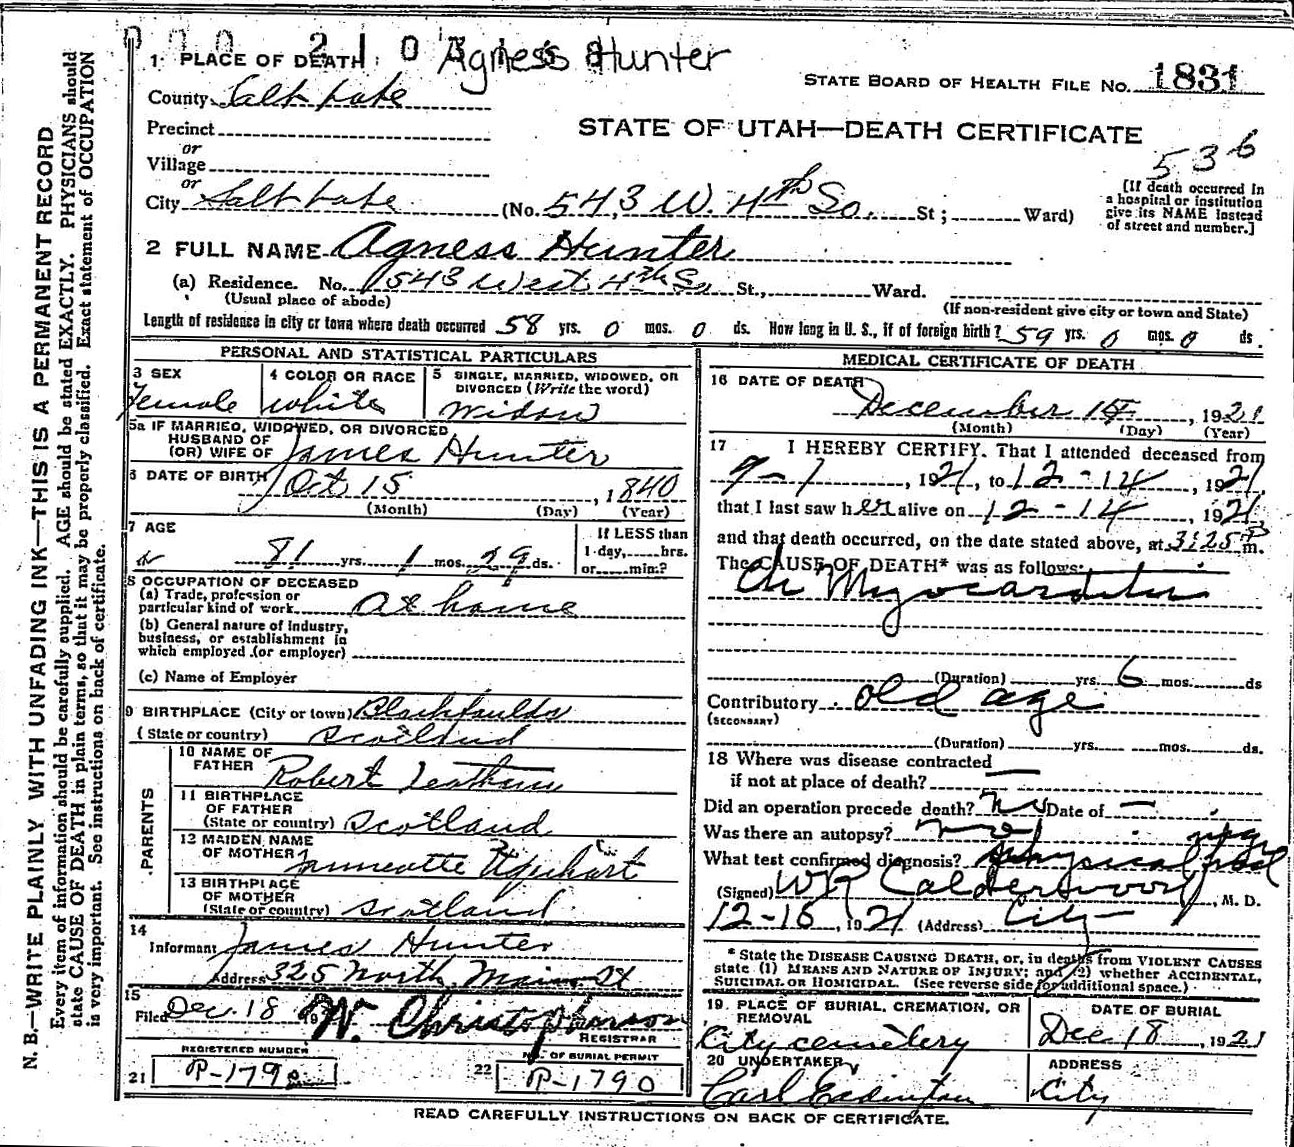 0 0 0 2 1 0 Agness Hunter
1 PLACE OF DEATH
STATE BOARD OF HEALTH FILE NO. 1831
County Salt Lake
STATE OF UTAH—DEATH CERTIFICATE
Precinct
or
Village
536
or
City Salt Lake (No. 543 W. 4th So. St; Ward)
[If death occurred in
a hospital or institution
give its NAME instead
of street and number.]
2 FULL NAME Agness Hunter
(a) Residence. No. 543 West 4th So St., Ward.
(Usual place of abode) (If non-resident give city or town and State)
Length of residence in city or town where death occurred 58 yrs. 0 mos. 0 ds. How long in U. S., if of foreign birth? 59 yrs. 0 mos. 0 ds.
PERSONAL AND STATISTICAL PARTICULARS
3 SEX
Female
4 COLOR OR RACE
white
5 SINGLE, MARRIED, WIDOWED, OR
DIVORCED (Write the word)
Widow
5a IF MARRIED, WIDOWED, OR DIVORCED
HUSBAND OF
(OR) WIFE OF James Hunter
6 DATE OF BIRTH Oct 15, 1840
(Month) (Day) (Year)
7 AGE
81 yrs. 1 mos. 29 ds.
If LESS than
1 day, hrs.
or min.?
8 OCCUPATION OF DECEASED
(a) Trade, profession or
particular kind of work at home
(b) General nature of Industry,
business, or establishment in
which employed (or employer)
(c) Name of Employer
9 BIRTHPLACE (City or town)
(State or country) Scotland
PARENTS
10 NAME OF
FATHER Robert
11 BIRTHPLACE
OF FATHER
(State or country) Scotland
12 MAIDEN NAME
OF MOTHER
13 BIRTHPLACE
OF MOTHER
(State or country) Scotland
14
Informant James Hunter
Address 325 North Main St
15
Filed Dec. 18 19 W. Christopherson
REGISTRAR
REGISTERED NUMBER
21 P-1790
NO. OF BURIAL PERMIT
22 P-1790
MEDICAL CERTIFICATE OF DEATH
16 DATE OF DEATH
December, 1921
(Month) (Day) (Year)
17 I HEREBY CERTIFY, That I attended deceased from
9-7, 1921, to 12-14, 1921,
that I last saw her alive on 12-14, 1921
and that death occurred, on the date stated above, at 3:25 P m.
The CAUSE OF DEATH* was as follows:
Ch Myocarditis
(Duration) yrs. 6 mos. ds
Contributory old age
(SECONDARY)
(Duration) yrs. mos. ds.
18 Where was disease contracted
if not at place of death? —
Did an operation precede death? no Date of —
Was there an autopsy? no
What test confirmed diagnosis? physical
(Signed) WR Calderwood, M. D.
12-16, 1921 (Address) City
* State the DISEASE CAUSING DEATH, or, in deaths from VIOLENT CAUSES
state (1) MEANS AND NATURE OF INJURY; and (2) whether ACCIDENTAL,
SUICIDAL OR HOMICIDAL. (See reverse side for additional space.)
19 PLACE OF BURIAL, CREMATION, OR
REMOVAL
City cemetery
DATE OF BURIAL
Dec 18, 1921
20 UNDERTAKER
Carl
ADDRESS
City
READ CAREFULLY INSTRUCTIONS ON BACK OF CERTIFICATE.
N. B.—WRITE PLAINLY WITH UNFADING INK—THIS IS A PERMANENT RECORD
Every item of information should be carefully supplied. AGE should be stated EXACTLY. PHYSICIANS should
state CAUSE OF DEATH in plain terms, so that it may be properly classified. Exact statement of OCCUPATION
is very important. See instructions on back of certificate.